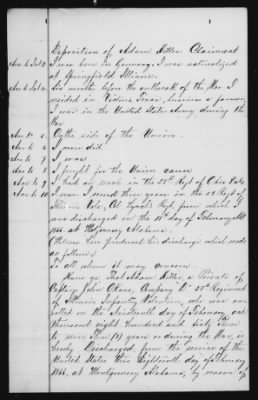 Deposition of Adam Hitter Claimant
Ans to Int 3 I was born in Germany. I was naturalized
at Springfield Illinois.
Ans to Int 4 Six months before the outbreak of the War I
resided in Victoria, Texas, business a farmer,
I was in the United States Army during the
War
Ans to 5 On the side of the Union.
Ans to 6 I never did
Ans to 7 I was
Ans to 8 I fought for the Union cause
Ans to 9 I had an uncle in the 58th Regt of Ohio Vols
Ans to 10 I was. I served three years in the 58 Regt of
Illinois Vols, Col Lynch's Regt, from which I
was discharged on the 18th day of February AD
1866, at Montgomery Alabama.
(Witness here produced his discharge which reads
as follows)
To all whom it may concern.
Know ye That Adam Hitter, a Private of
Captain John Okane, Company "B" 58th Regiment
of Illinois Infantry Volunteers, who was en-
rolled on the Nineteenth day of February one
thousand eight Hundred and sixty Three
to serve Three (3) years or during the War, is
hereby Discharged from the service of the
United States this Eighteenth day of February
1866, at Montgomery Alabama, by reason of